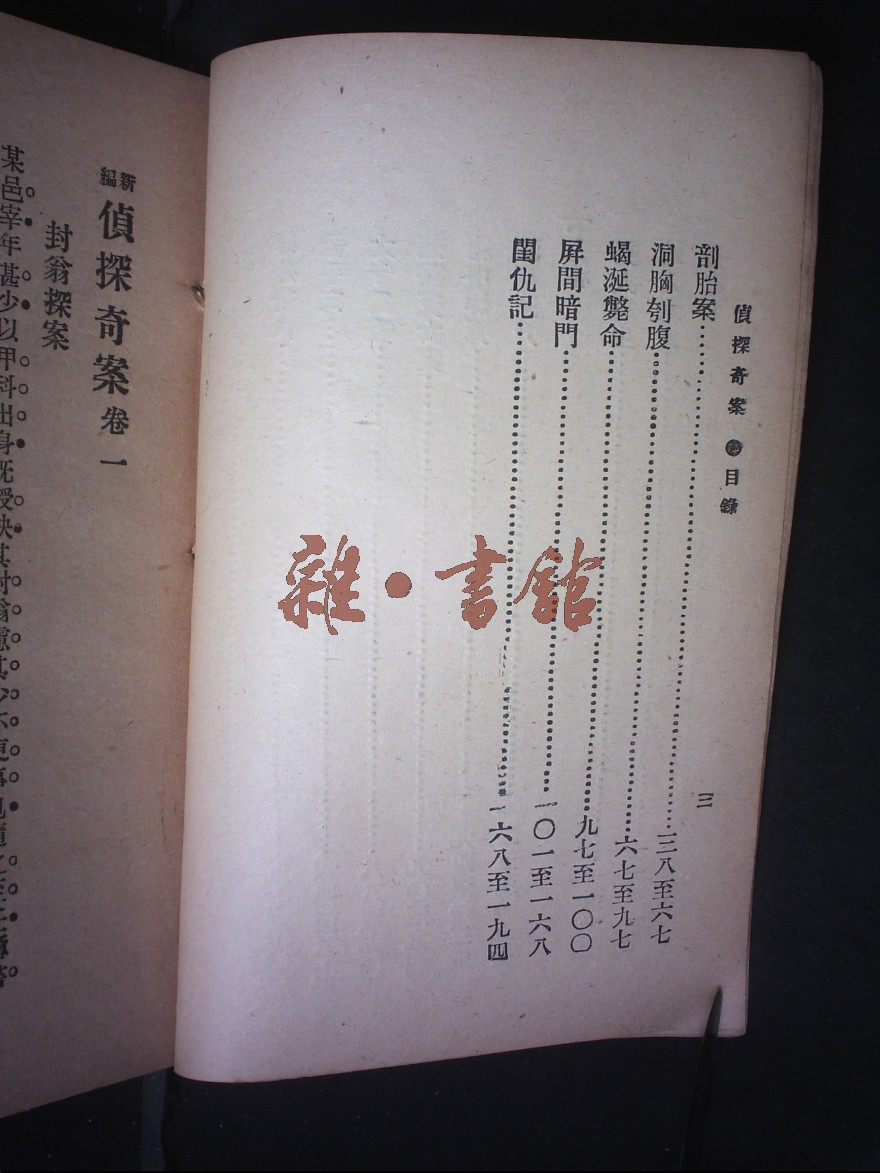 偵探奇案 目錄
三
剖胎案……三八至六七
洞胸刳腹……六七至九七
蝎涎斃命……九七至一〇〇
屏間暗門……一〇一至一六八
閨仇記……一六八至一九四
雜・書館
新編
偵探奇案卷一
封翁探案
某邑宰年甚少以甲科出身既授缺其封翁慮其少不更事